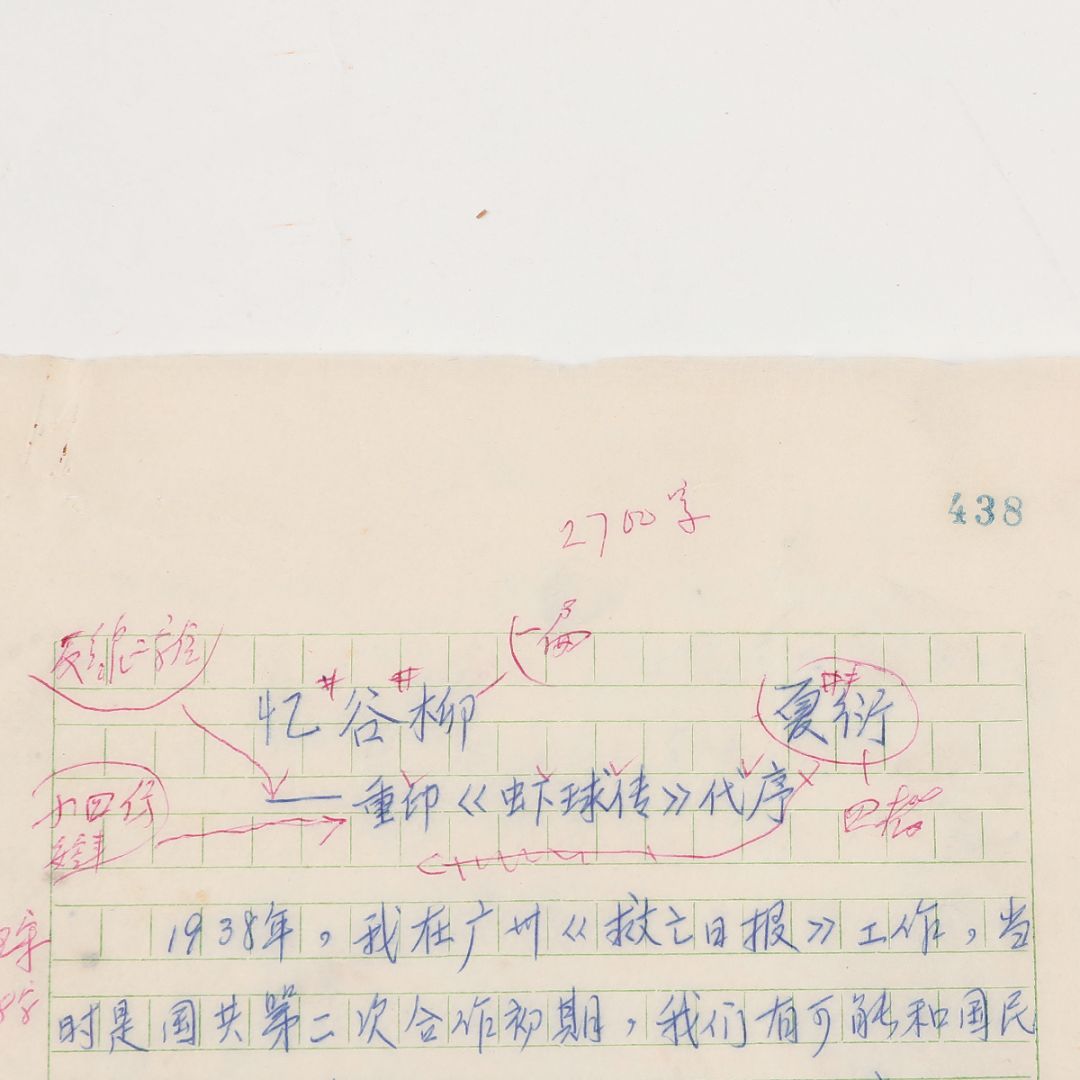 2700字
438
忆谷柳
夏衍
——重印《虾球传》代序
1938年，我在广州《救亡日报》工作，当
时是国共第二次合作初期，我们有可能和国民